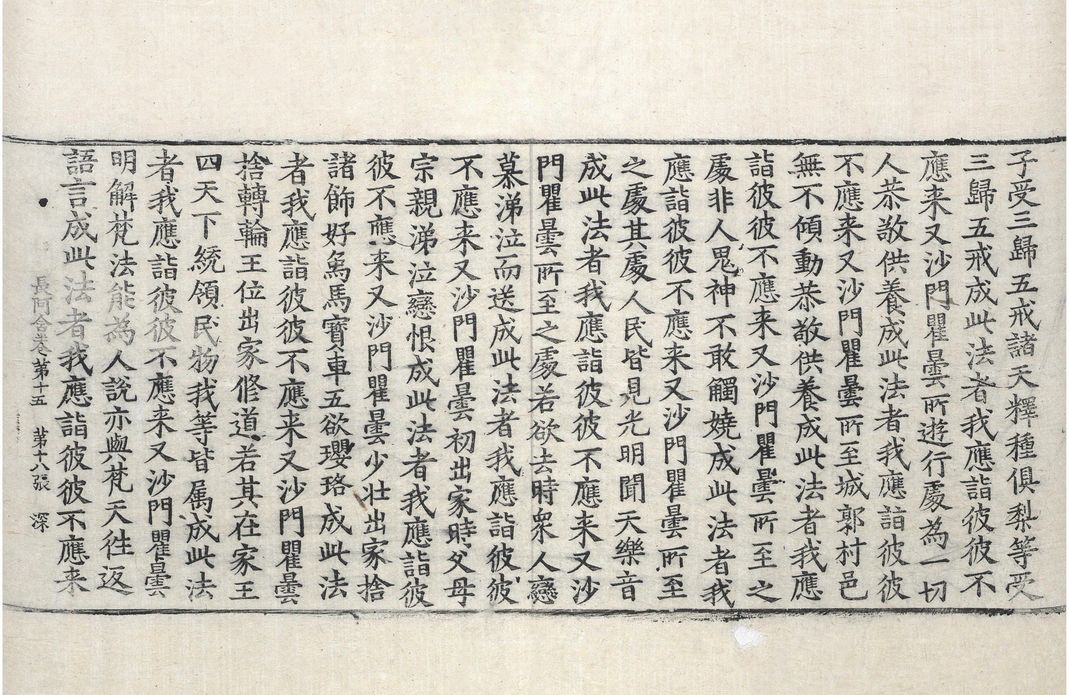 子受三歸五戒諸天釋種俱梨等受
三歸五戒成此法者我應詣彼彼不
應来又沙門瞿曇所遊行處為一切
人恭敬供養成此法者我應詣彼彼
不應来又沙門瞿曇所至城郭村邑
無不傾動恭敬供養成此法者我應
詣彼彼不應来又沙門瞿曇所至之
處非人鬼神不敢觸嬈成此法者我
應詣彼彼不應来又沙門瞿曇所至
之處其處人民皆見光明聞天樂音
成此法者我應詣彼彼不應来又沙
門瞿曇所至之處若欲去時衆人戀
慕涕泣而送成此法者我應詣彼彼
不應来又沙門瞿曇初出家時父母
宗親涕泣戀恨成此法者我應詣彼
彼不應来又沙門瞿曇少壯出家捨
諸飾好象馬寶車五欲瓔珞成此法
者我應詣彼彼不應来又沙門瞿曇
捨轉輪王位出家修道若其在家王
四天下統領民物我等皆属成此法
者我應詣彼彼不應来又沙門瞿曇
明解梵法能為人說亦與梵天往返
語言成此法者我應詣彼彼不應来
長阿含卷第十五　第十八張　深